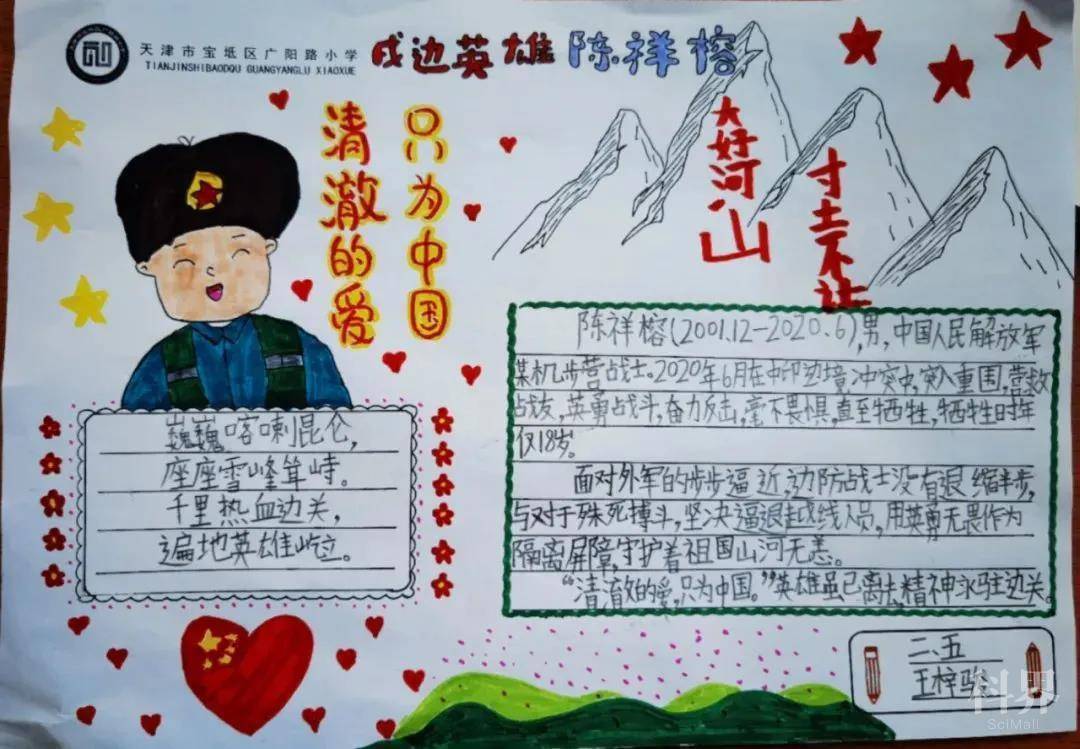 天津市宝坻区广阳路小学
TIANJINSHIBAODQU GUANGYANGLU XIAOXUE
戍边英雄 陈祥榕
清澈的爱
只为中国
大好河山
寸土不让
陈祥榕(2001.12-2020.6),男,中国人民解放军
某机步营战士。2020年6月在中印边境冲突中,突入重围,营救
战友,英勇战斗,奋力反击,毫不畏惧,直至牺牲,牺牲时年
仅18岁。
面对外军的步步逼近,边防战士没有退缩半步,
与对于殊死搏斗,坚决逼退越线人员,用英勇无畏作为
隔离屏障,守护着祖国山河无恙。
“清澈的爱,只为中国。”英雄虽已离去,精神永驻边关。
巍巍喀喇昆仑,
座座雪峰耸峙。
千里热血边关,
遍地英雄屹立。
二、五
王梓
科界
SciMall